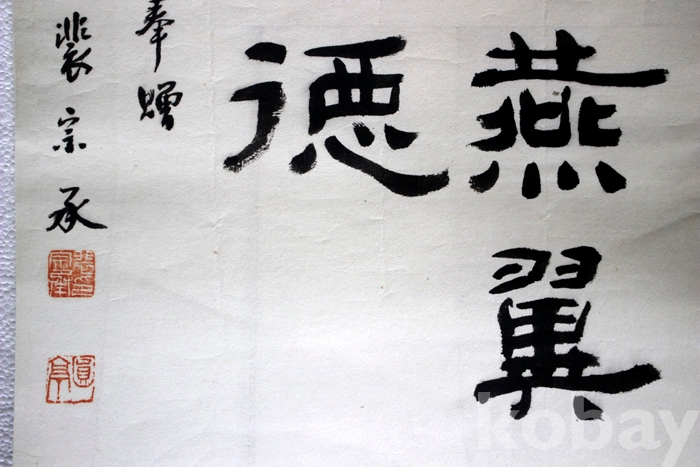 燕翼
德
奉贈
裵宗承
圓亭
kobay